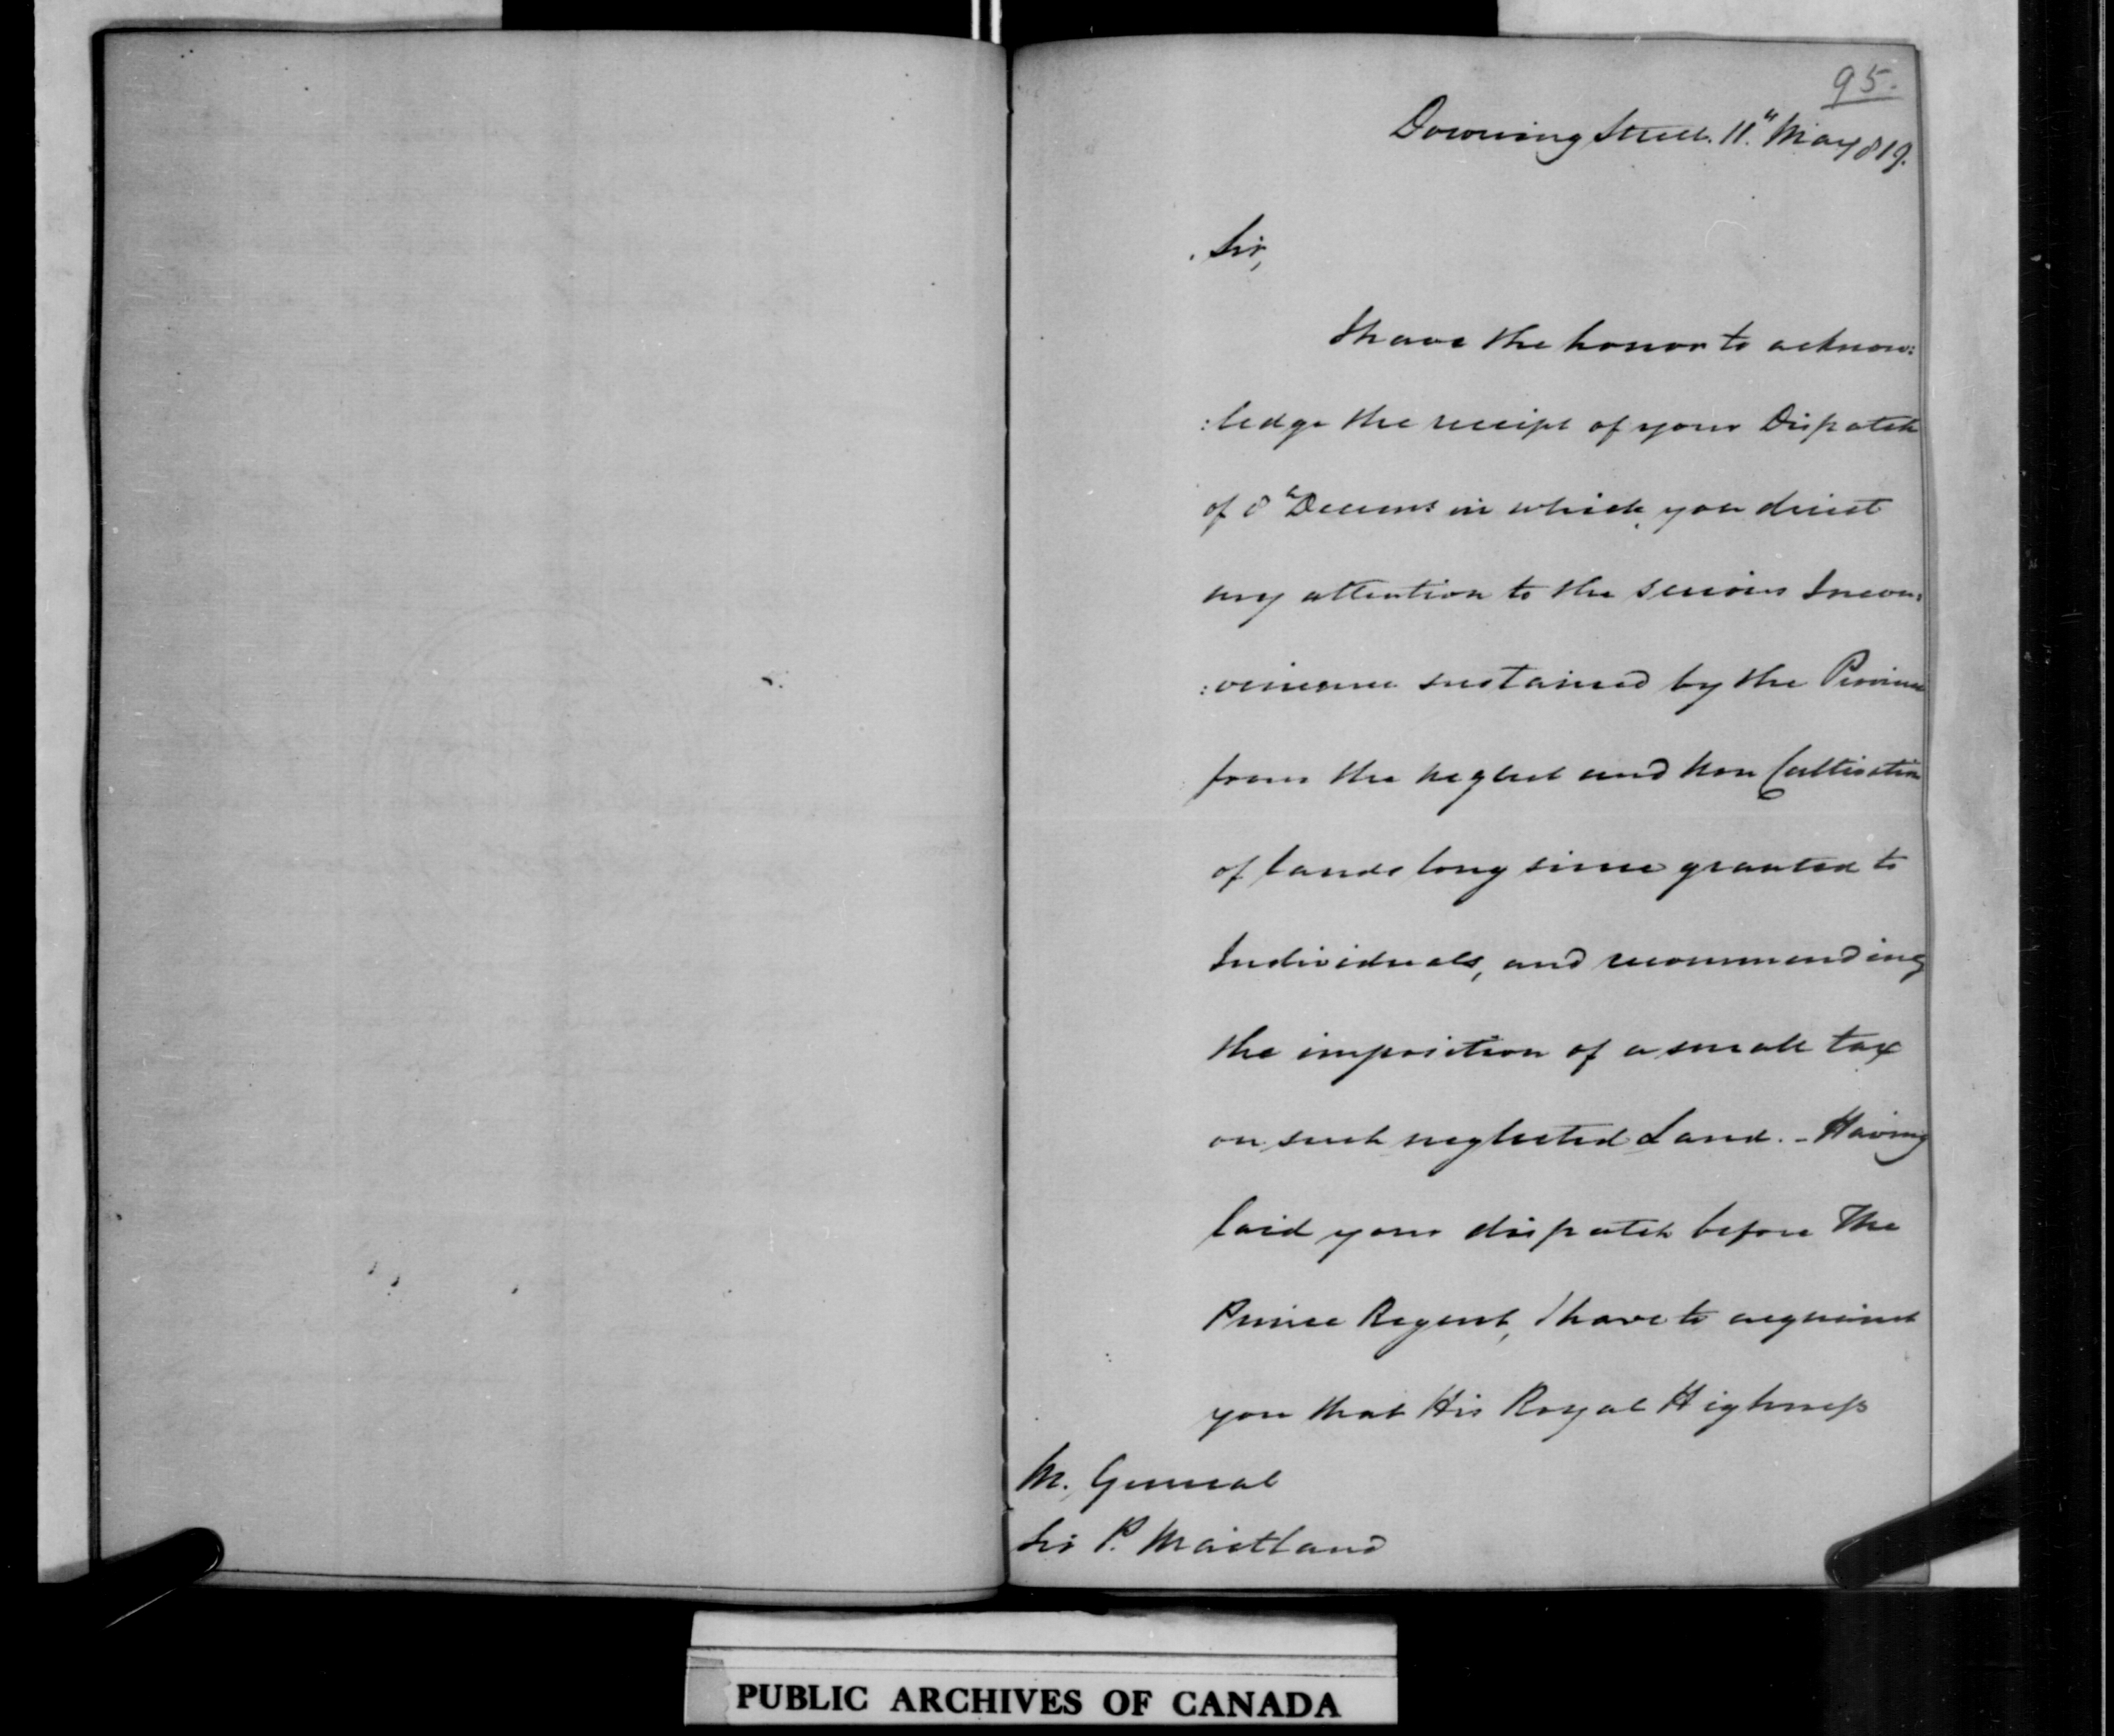 95.
Downing Street. 11." May 819.
Sir,
I have the honor to acknow:
:ledge the receipt of your Dispatch
of 8" in which you direct
my attention to the serious Incon:
:venience sustained by the Province
from the neglect and non Cultivation
of lands long since granted to
Individuals, and recommending
the imposition of a small tax
on such neglected Land. - Having
laid your dispatch before The
Prince Regent, I have to acquaint
you that His Royal Highness
M. General
Sir P. Maitland
PUBLIC ARCHIVES OF CANADA